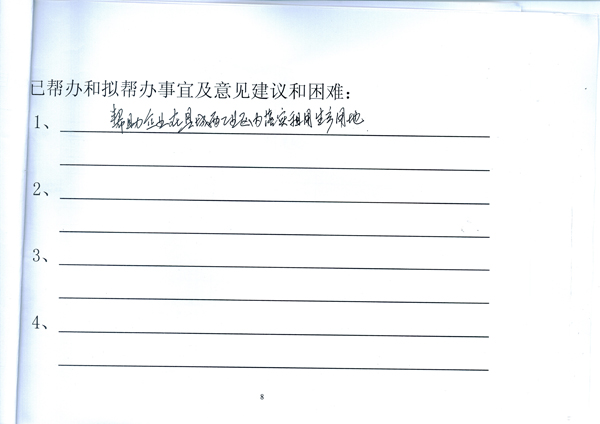 已帮办和拟帮办事宜及意见建议和困难：
1、帮助企业在县城西工业区内落实租用生产用地
2、
3、
4、
8